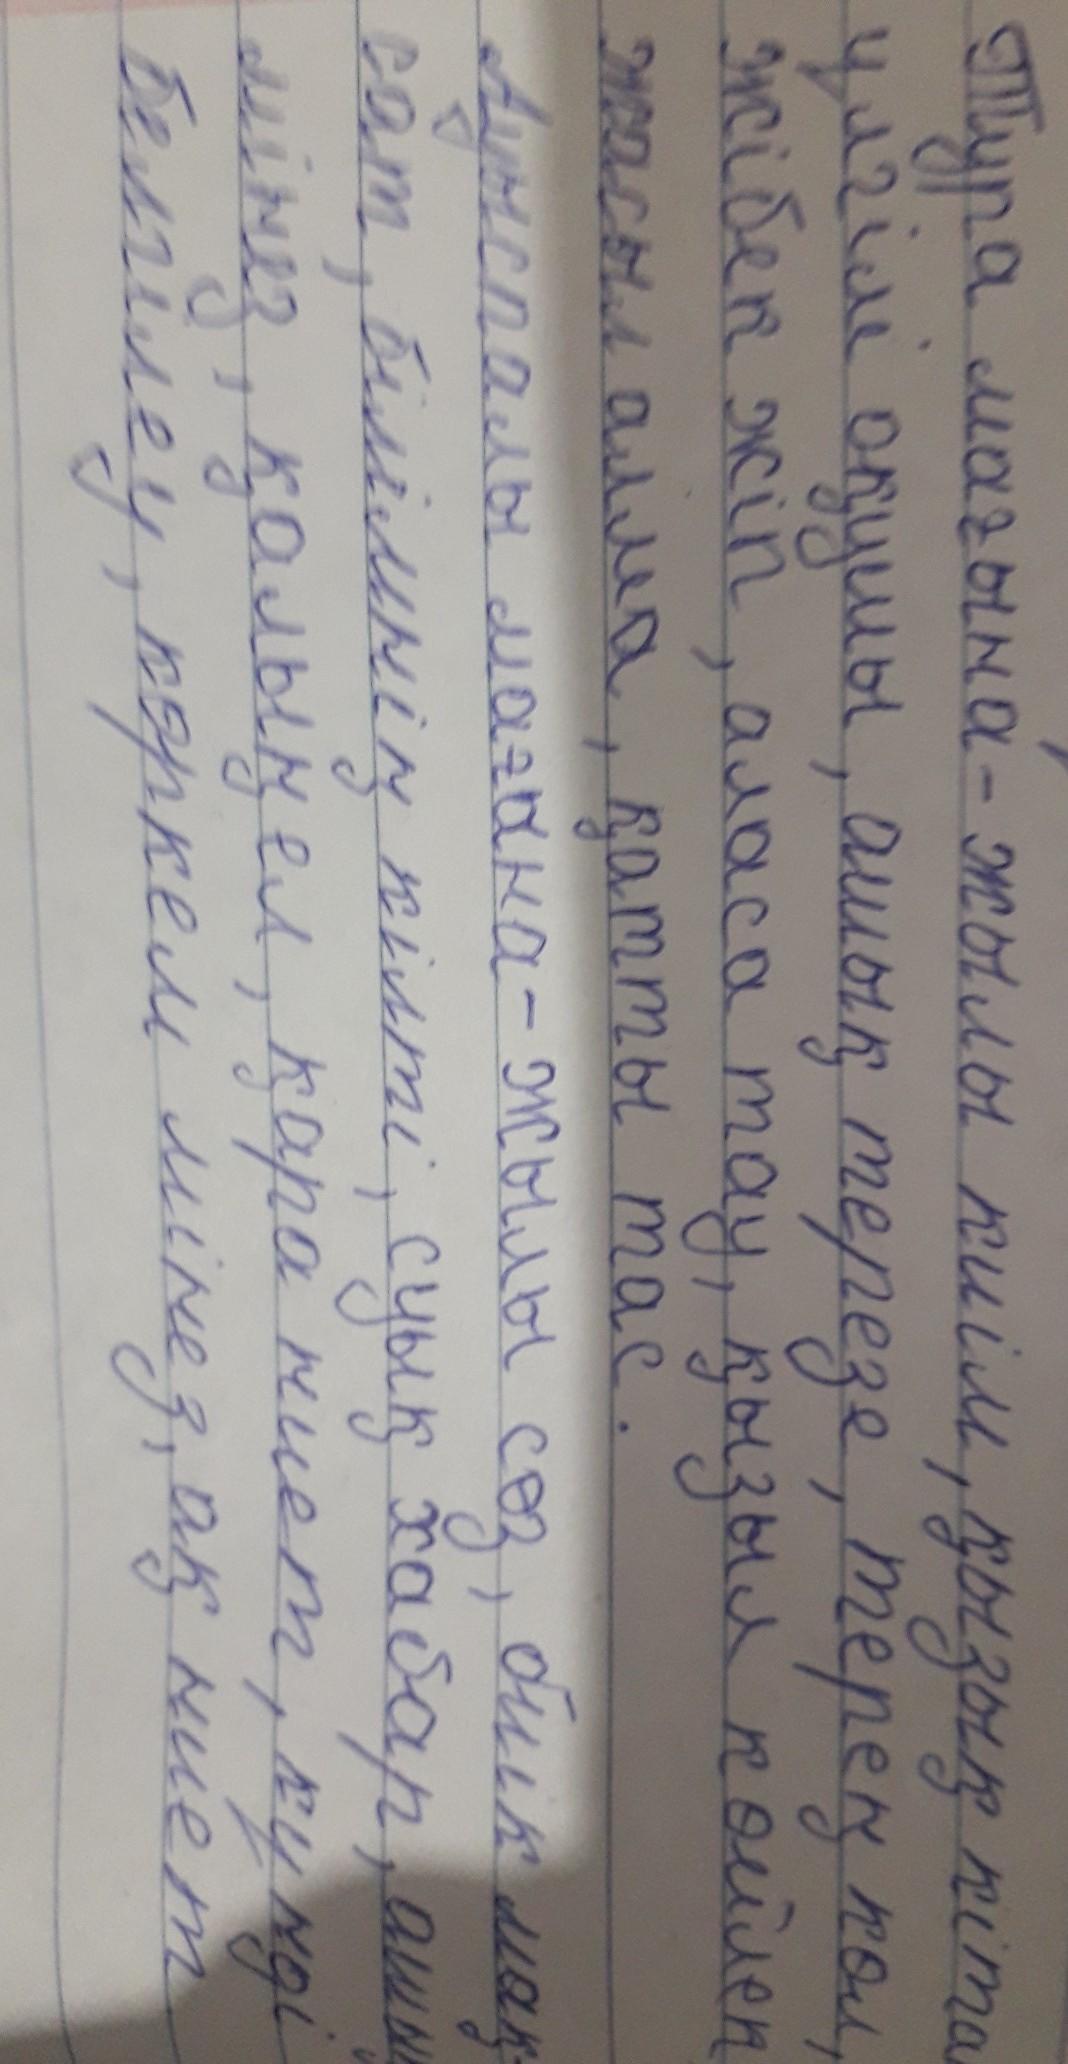 Тура мағына - жылы киім, қызық кіта
үлгілі оқушы, ашық терезе, терең көл,
жібек жіп, аласа тау, қызыл көйлек
жасыл алма, қатты тас.
Ауыспалы мағана - жылы сөз, биік мақ-
сат, білімнің кілті, суық хабар, ашық
мінез, қалыңел, қара ниет, күнді
белгілеу, көркем мінез, ақ ниет